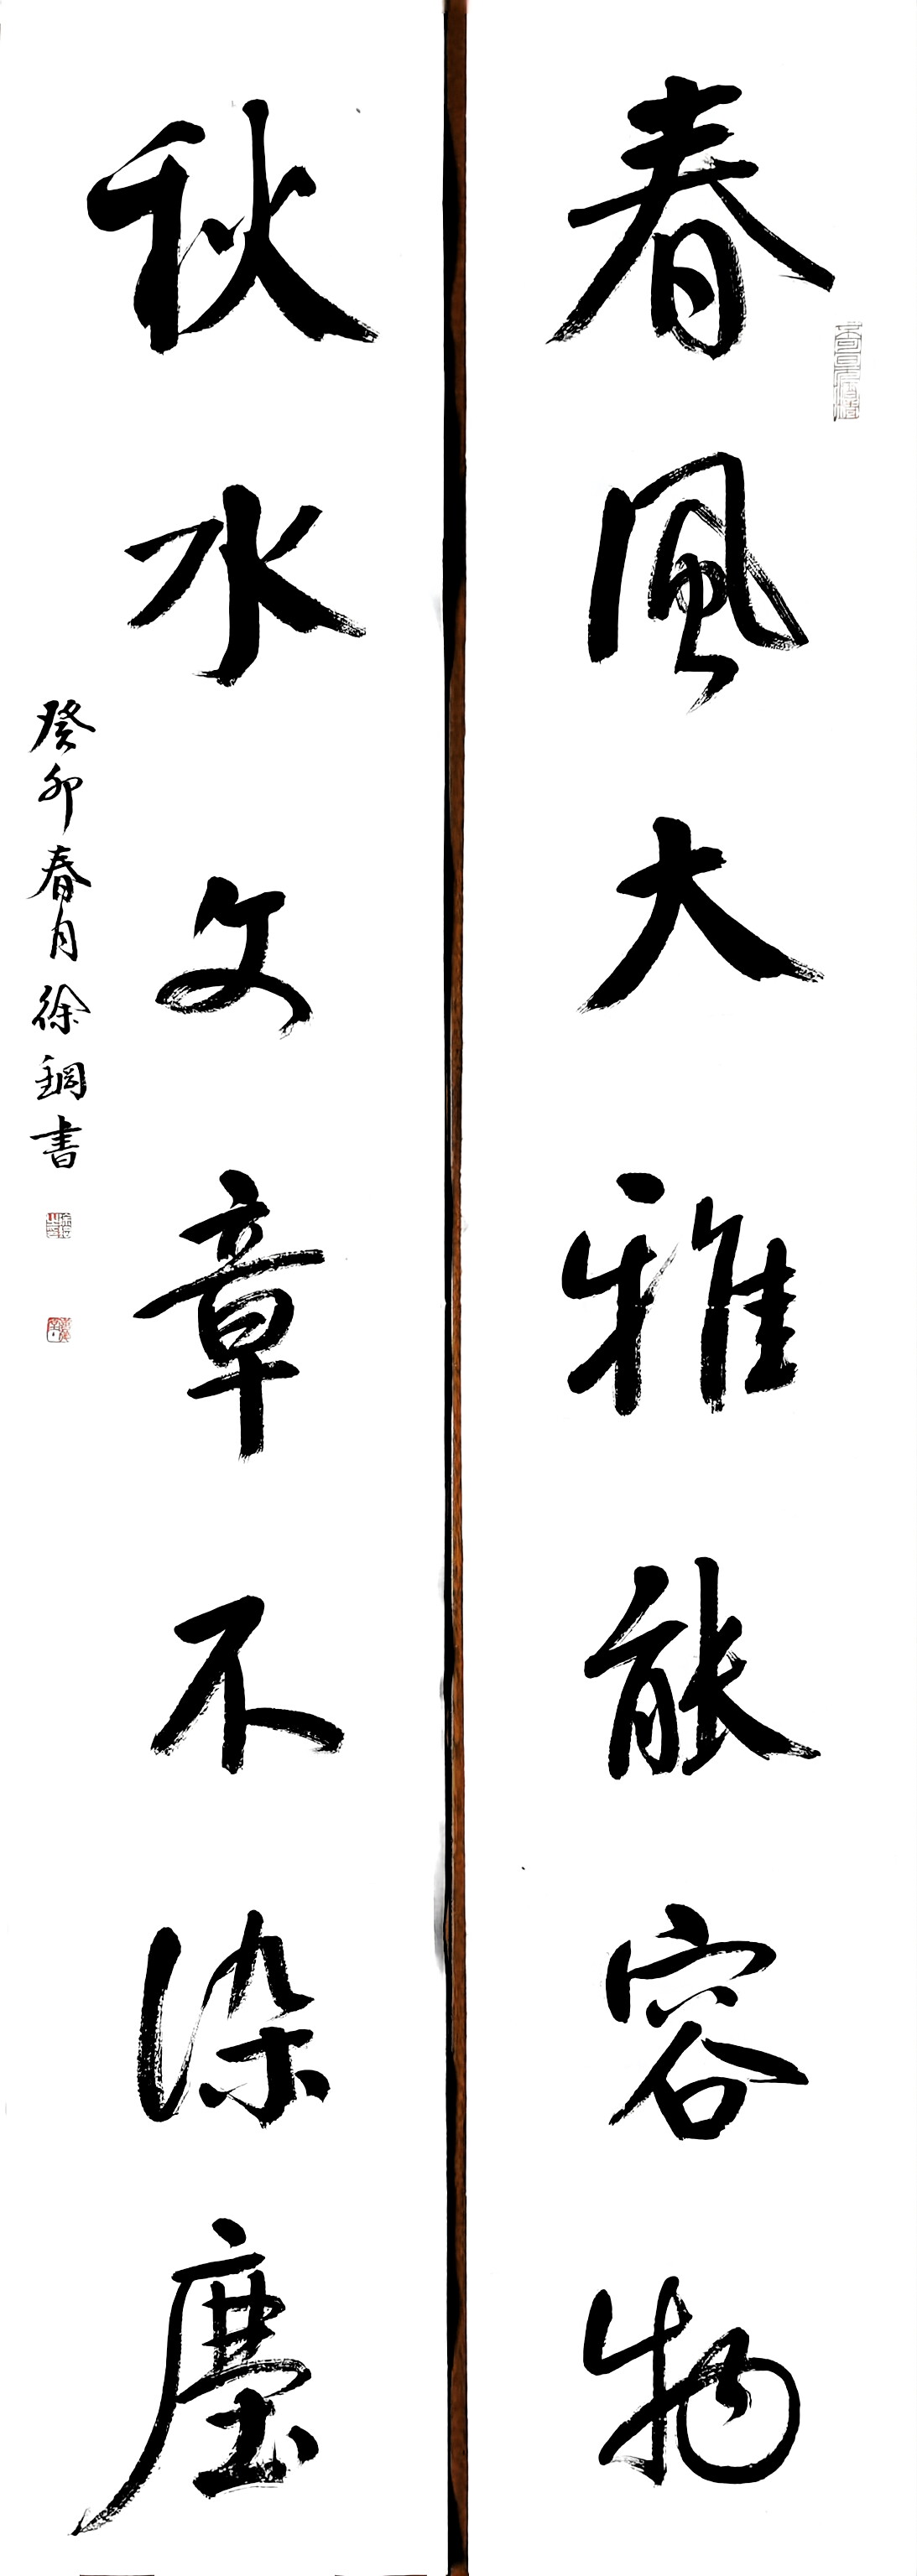 春風大雅能容物
秋水文章不染塵
癸卯春月徐鋼書